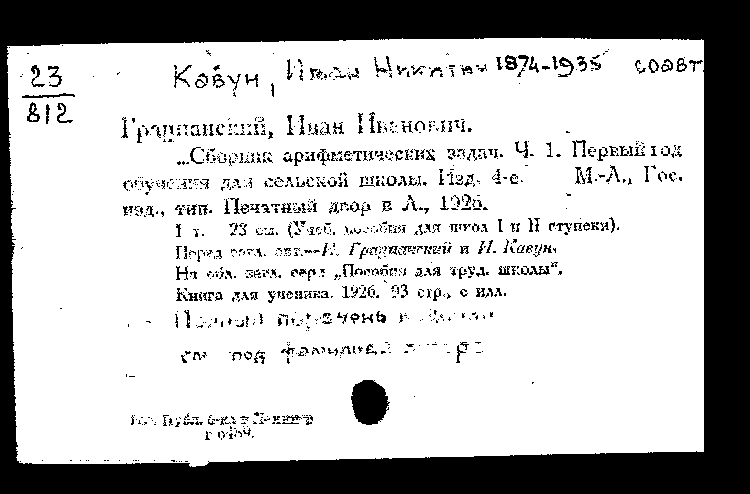 23
812
Кавун, Иван Никитич 1874-1935 соавт.
Грацианский, Иван Иванович.
...Сборник арифметических задач. Ч. 1. Первый год
обучения для сельской школы. Изд. 4-е. М.-Л., Гос.
изд., тип. Печатный двор в Л., 1926.
1 т. 23 см. (Учеб. пособия для школ I и II ступени).
Перед загл. авт.—И. Грацианский и И. Кавун.
На обл. загл. серл „Пособия для труд. школы".
Книга для ученика. 1926. 93 стр., с илл.
Полный перечень
см под фамилией
Гос. Публ. б-ка в Ленингр